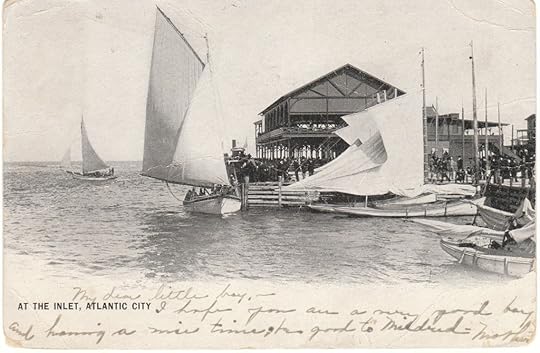 My dear little boy,-
AT THE INLET, ATLANTIC CITY
I hope you are a very good boy
and having a nice time, & so good to Mildred - Mother